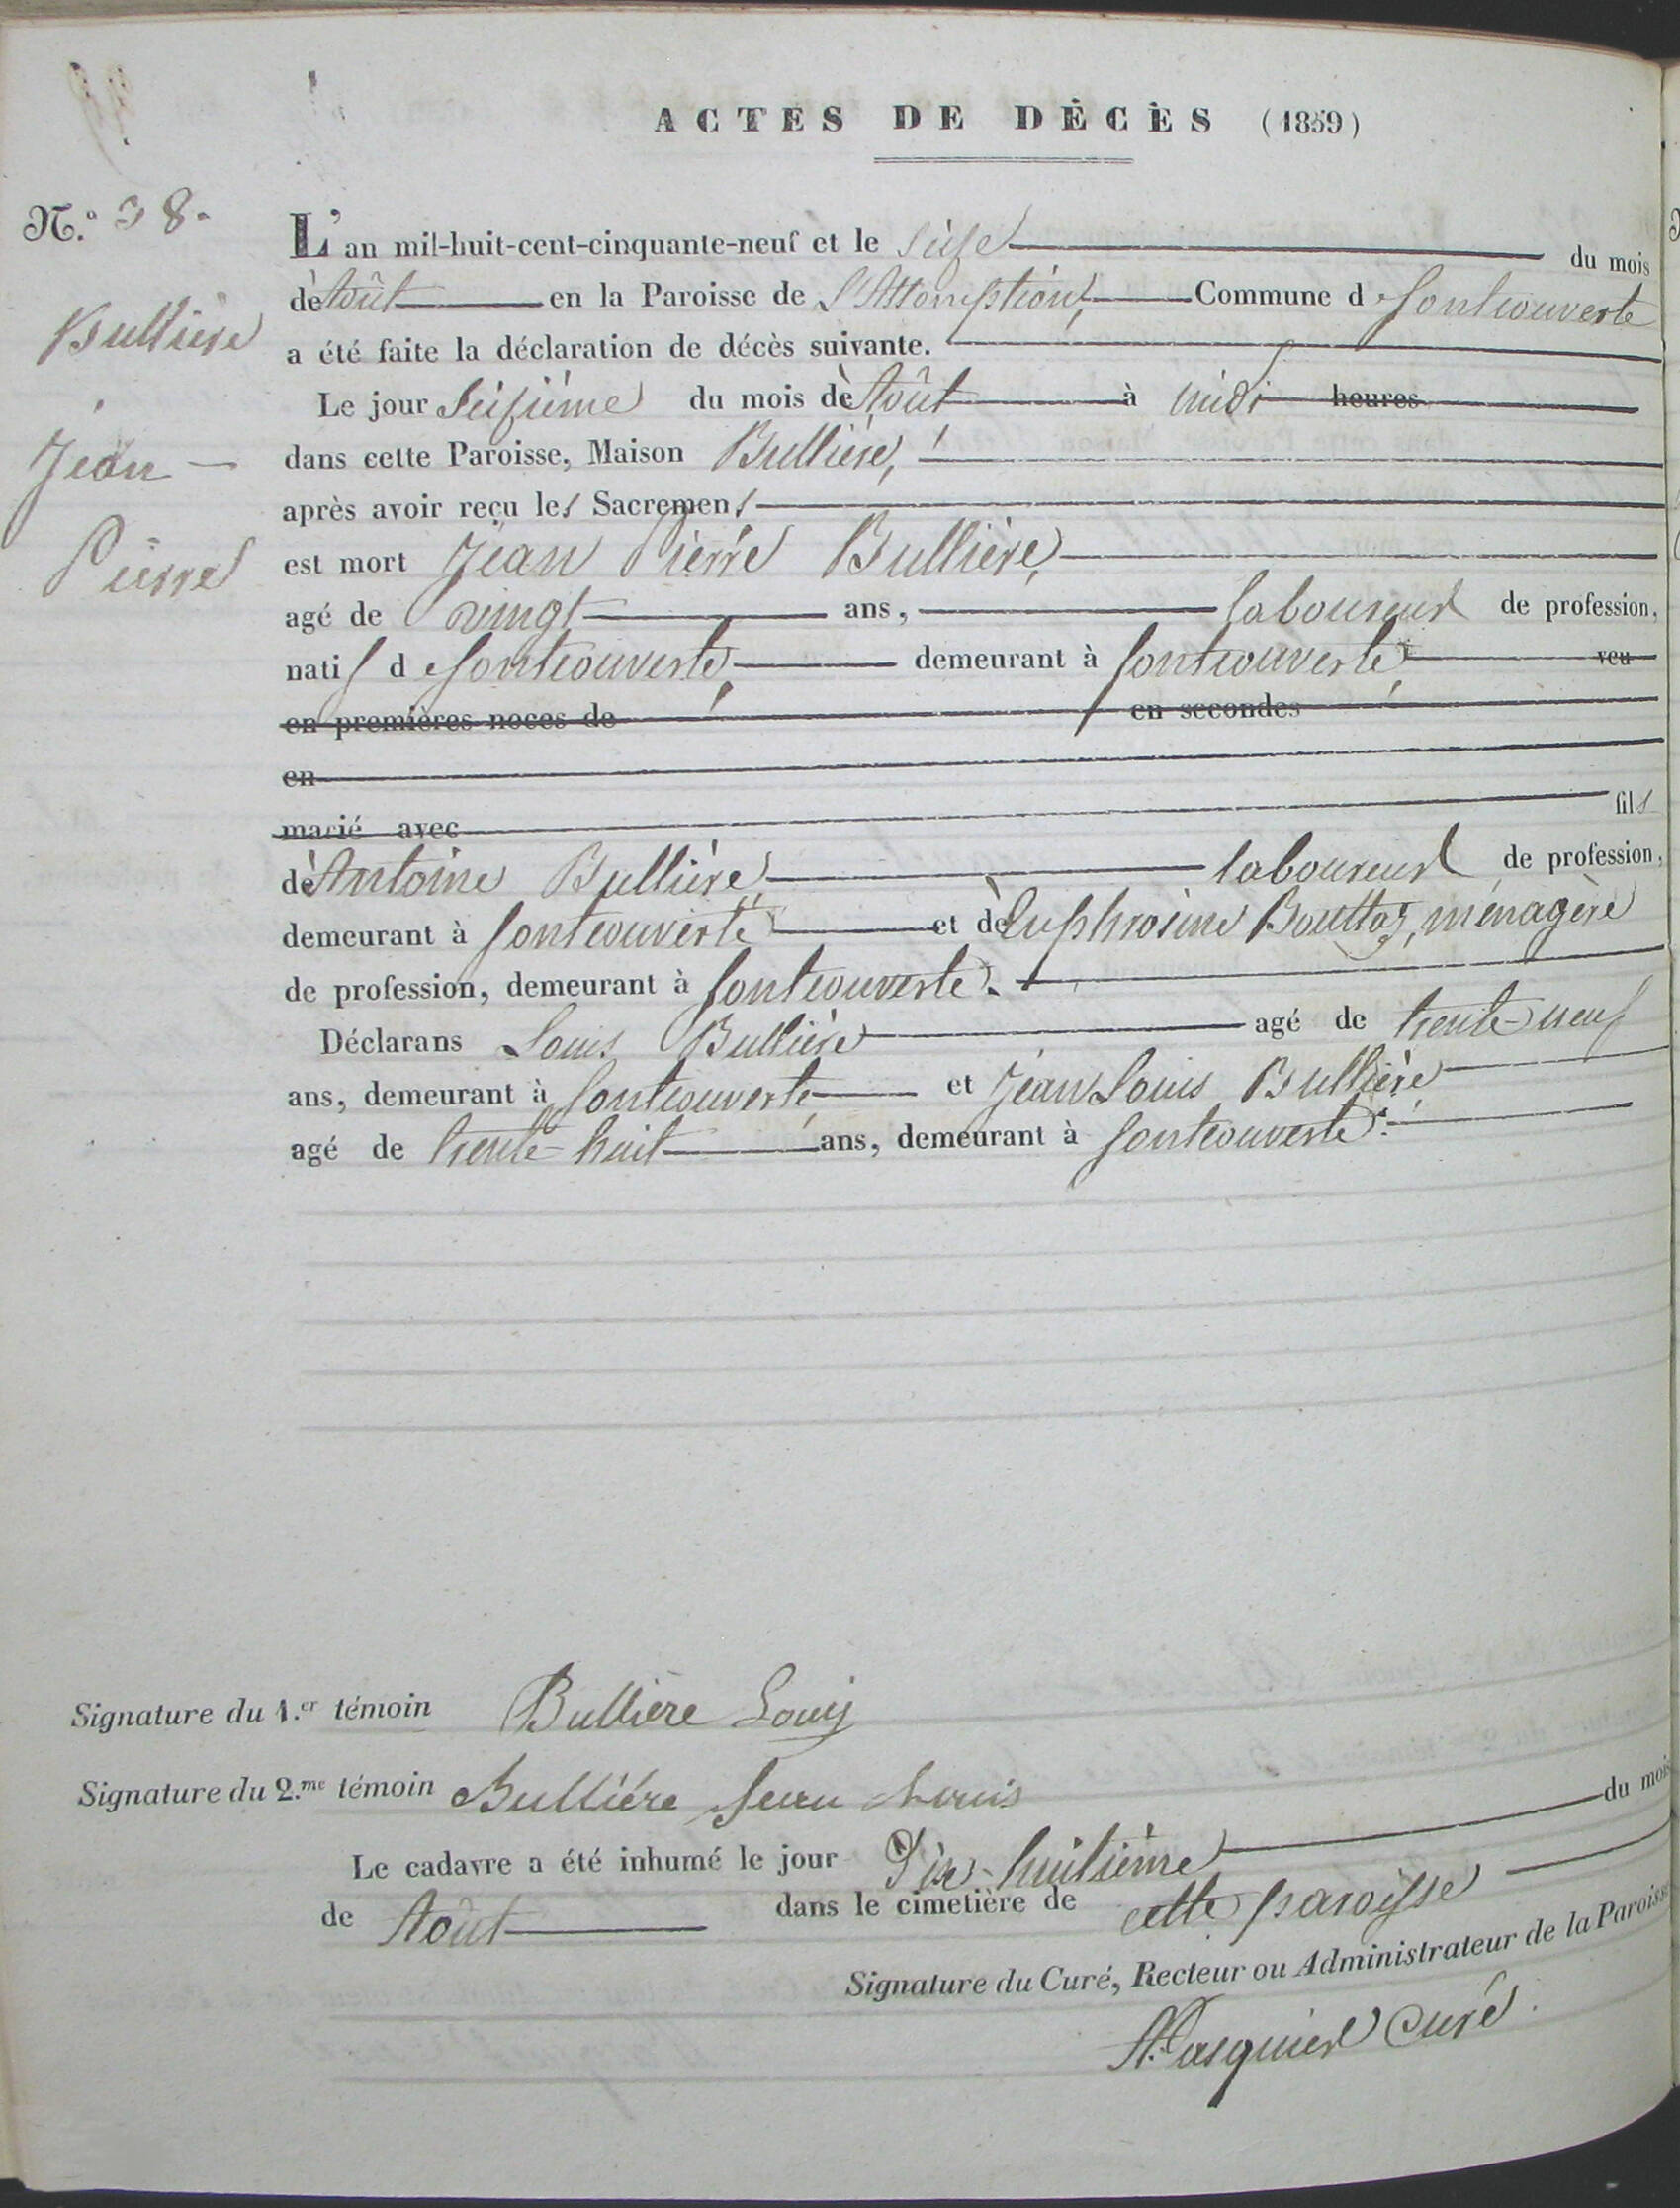 ACTES DE DÉCÈS (1859)
N.º 38.
Bullière
Jean —
Pierre
L'an mil-huit-cent-cinquante-neuf et le Seize du mois
de Août en la Paroisse de l'Assomption, Commune d e fontcouverte
a été faite la déclaration de décès suivante.
Le jour Seizième du mois de Août à midi heures
dans cette Paroisse, Maison Bullière,
après avoir reçu les Sacremens
est mort Jean Pierre Bullière,
agé de vingt ans, laboureur de profession,
natif d e fontcouverte, demeurant à fontcouverte, veu
en premières noces de en secondes
en
marié avec fils
de Antoine Bullière, laboureur de profession,
demeurant à fontcouverte et de Euphrosine Bouttaz, ménagère
de profession, demeurant à fontcouverte.
Déclarans Louis Bullière agé de trente-neuf
ans, demeurant à fontcouverte et Jean Louis Bullière
agé de trente-huit ans, demeurant à fontcouverte.
Signature du 1.er témoin Bullière Louis
Signature du 2.me témoin Bulliére Jean Louis
Le cadavre a été inhumé le jour Dix-huitième du mois
de Août dans le cimetière de cette paroisse
Signature du Curé, Recteur ou Administrateur de la Paroisse
Pasquier Curé.